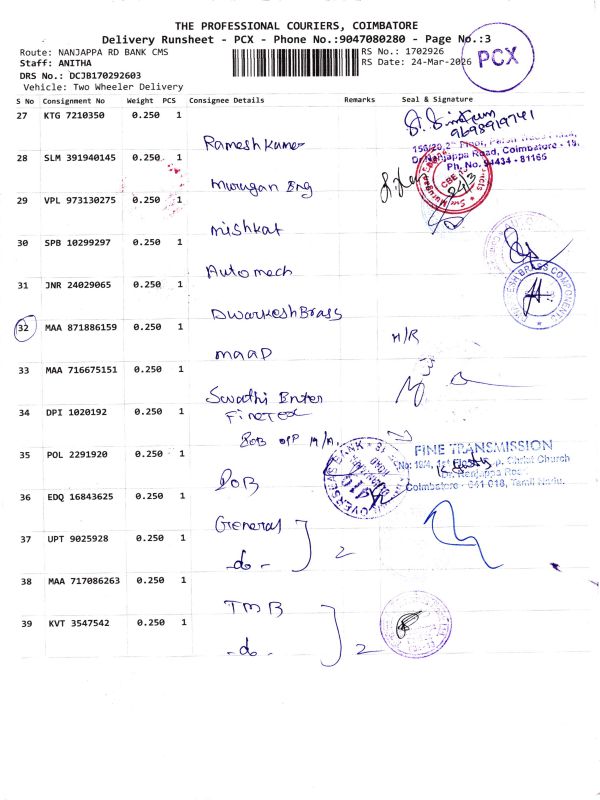 THE PROFESSIONAL COURIERS, COIMBATORE
Delivery Runsheet - PCX - Phone No.:9047080280 - Page No.:3
Route: NANJAPPA RD BANK CMS
RS No.: 1702926
Staff: ANITHA
RS Date: 24-Mar-2026
PCX
DRS No.: DCJB170292603
Vehicle: Two Wheeler Delivery
S No Consignment No Weight PCS Consignee Details Remarks Seal & Signature
27 KTG 7210350 0.250 1
9698919741
Ramesh Kumar
Nanjappa Road, Coimbatore - 18.
Ph. No. 94434 - 81165
28 SLM 391940145 0.250 1
Murugan Eng
24/3
29 VPL 973130275 0.250 1
Mishkat
30 SPB 10299297 0.250 1
Automech
31 JNR 24029065 0.250 1
Dwarkesh Brass
BRASS COMPONENTS
32 MAA 871886159 0.250 1
maaD
N/R
33 MAA 716675151 0.250 1
Swathi Enter
34 DPI 1020192 0.250 1
Finetex
BOB OPP
FINE TRANSMISSION
35 POL 2291920 0.250 1
Church
Coimbatore - 641 018, Tamil Nadu.
OVERSEAS BANK
36 EDQ 16843625 0.250 1
General
37 UPT 9025928 0.250 1
-do-
2
38 MAA 717086263 0.250 1
TMB
39 KVT 3547542 0.250 1
-do-
2